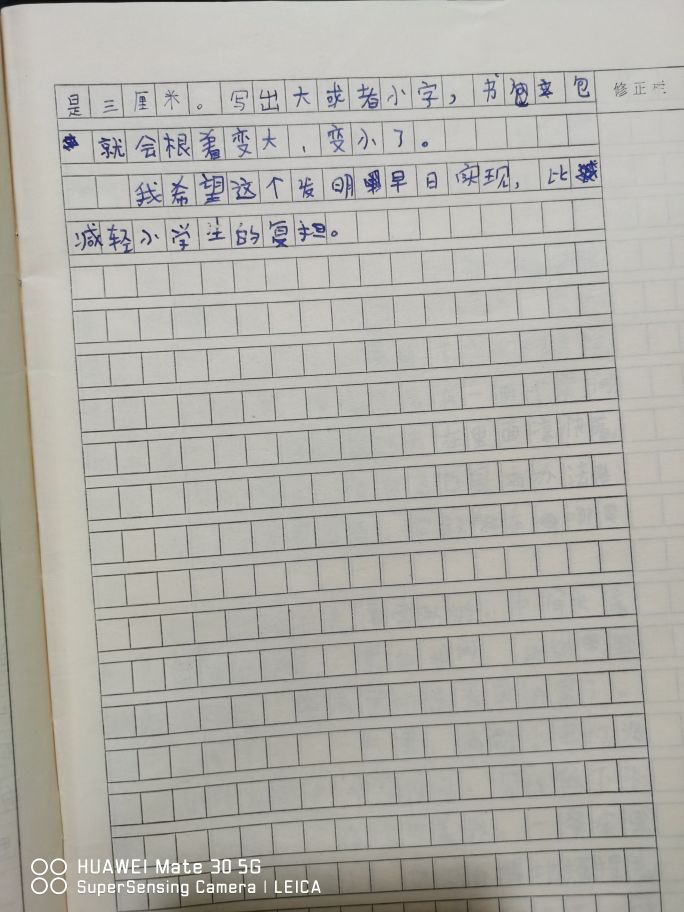 是三厘米。写出大或者小字，书包包
就会根着变大，变小了。
我希望这个发明早日实现，比
减轻小学生的复担。
修正栏
HUAWEI Mate 30 5G
SuperSensing Camera | LEICA